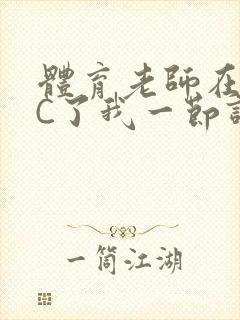 體育老師在
C了我一節
一筒江湖